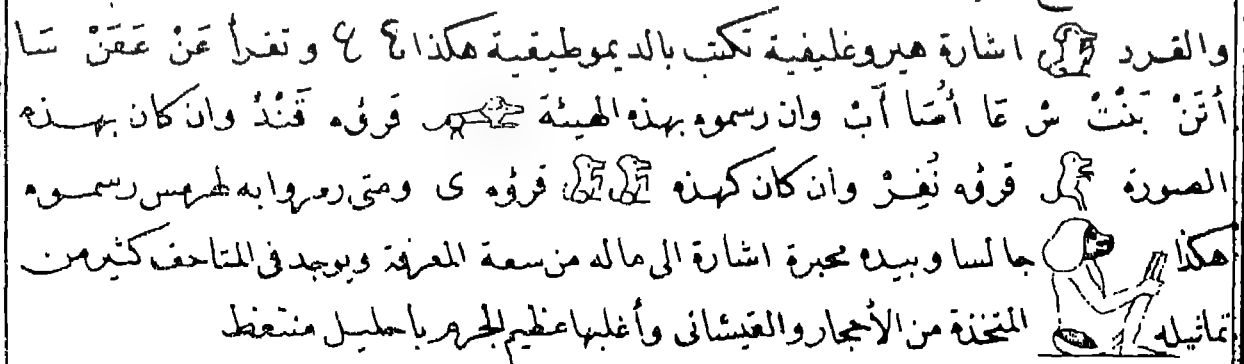 والقرد اشارة هيروغليفية تكتب بالديموطيقية هكذا و تقرأ عَنْ عَقَنْ سَا
أَتَنْ بَنْتْ شْ عَا أُمَنَا آبْ وان رسموه بهذه الهيئة قرؤه قَنْدْ وان كان بهـذه
الصورة قرؤه نُفِـرْ وان كان كهذه قرؤه ى ومتى رمزوا به لهرمس رسمـوه
هكذا جالسا وبيده محبرة اشارة الى ماله من سعة المعرفة ويوجد فى المتاحف كثير من
تماثيله المتخذة من الأحجار والقيشانى وأغلبها عظيم الجرم باحليـل منتعظ